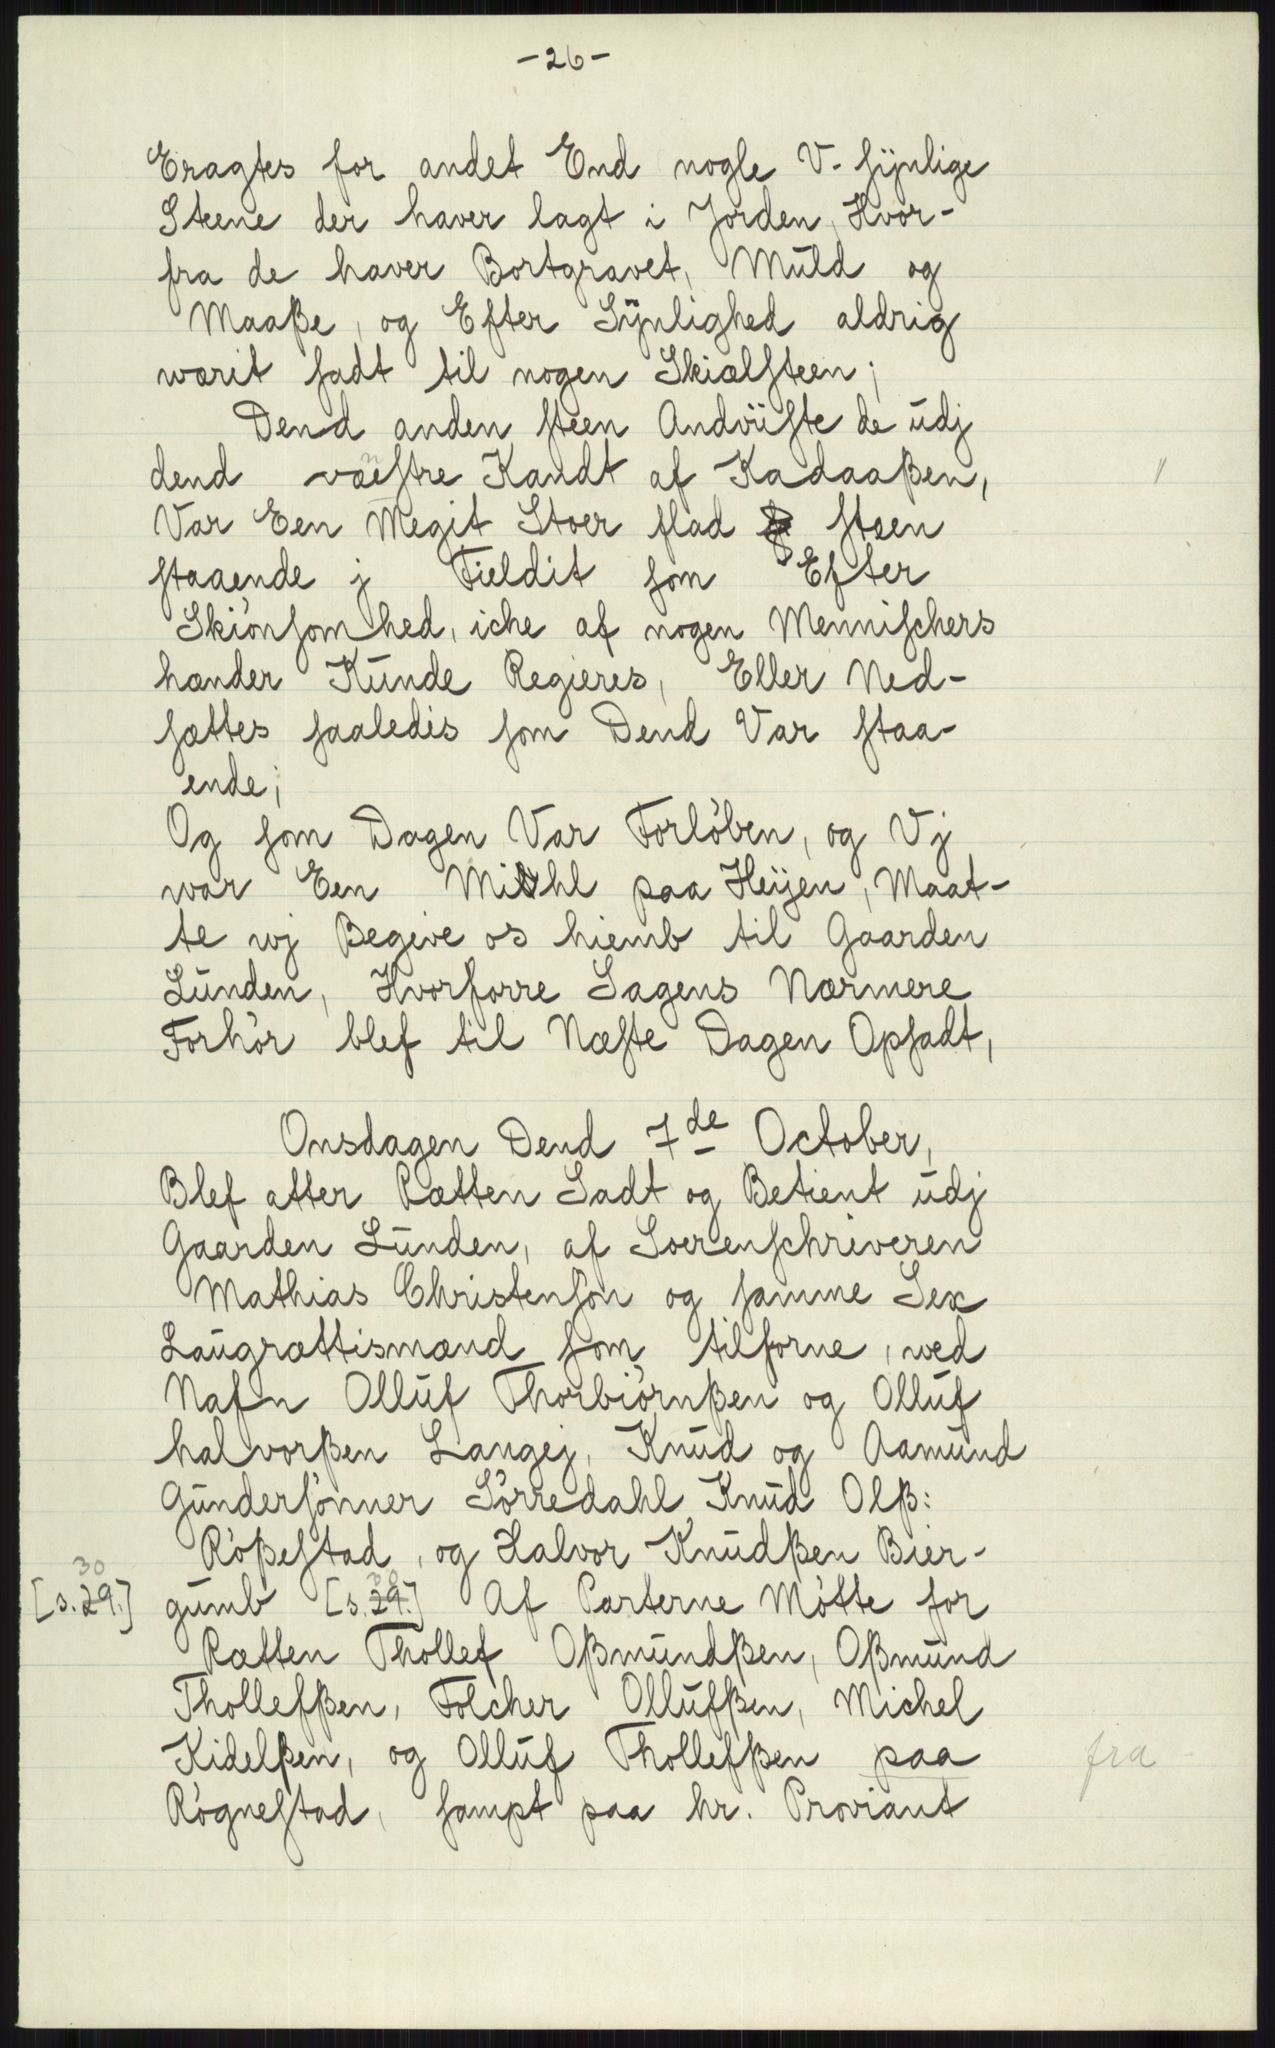 -26-
Eragtes for andet End nogle V-sÿnlige
Steene der haver lagt i Jorden, Hvor-
fra de haver Bortgravet, Muld og
Maaße, og Efter Sÿnlighed aldrig
wærit sadt til nogen Skiælsteen;
Dend anden steen Andviiste de udj
dend væstre Kandt af Kadaaßen,
Var Een Megit Stoer flad steen
staaende j Fieldit som Efter
Skiönsomhed, iche af nogen Mennischers
hænder Kunde Regieres, Eller Ned-
sættes saaledis som Dend Var staa-
ende;
Og som Dagen Var Forlöben, og Vj
war Een Miihl paa Heÿen, Maat-
te wj Begive os hiemb til Gaarden
Lunden, Hvorforre Sagens Nærmere
Forhör blef til Næste Dagen Opsadt,
Onsdagen Dend 7de October,
Blef atter Rætten Sadt og Betient udj
Gaarden Lunden, af Soerenschriveren
Mathias Christensön og samme Sex
Laugrættismænd som tilforne, wed
Nafn Olluf Thorbiörnßen og Olluf
halvorßen Langej, Knud og Aamund
Gundersönner Sörredahl Knud Olß:
Rößestad, og Halvor Knudßen Bier-
30
[s. 29.] gumb [s. 29.] 30 Af Parterne Mötte for
Rætten Thollef Oßmundßen, Oßmund
Thollefßen, Folcher Ollufßen, Michel
Kidelßen, og Olluf Thollefßen paa fra
Rögnestad, sampt paa hr. Proviant